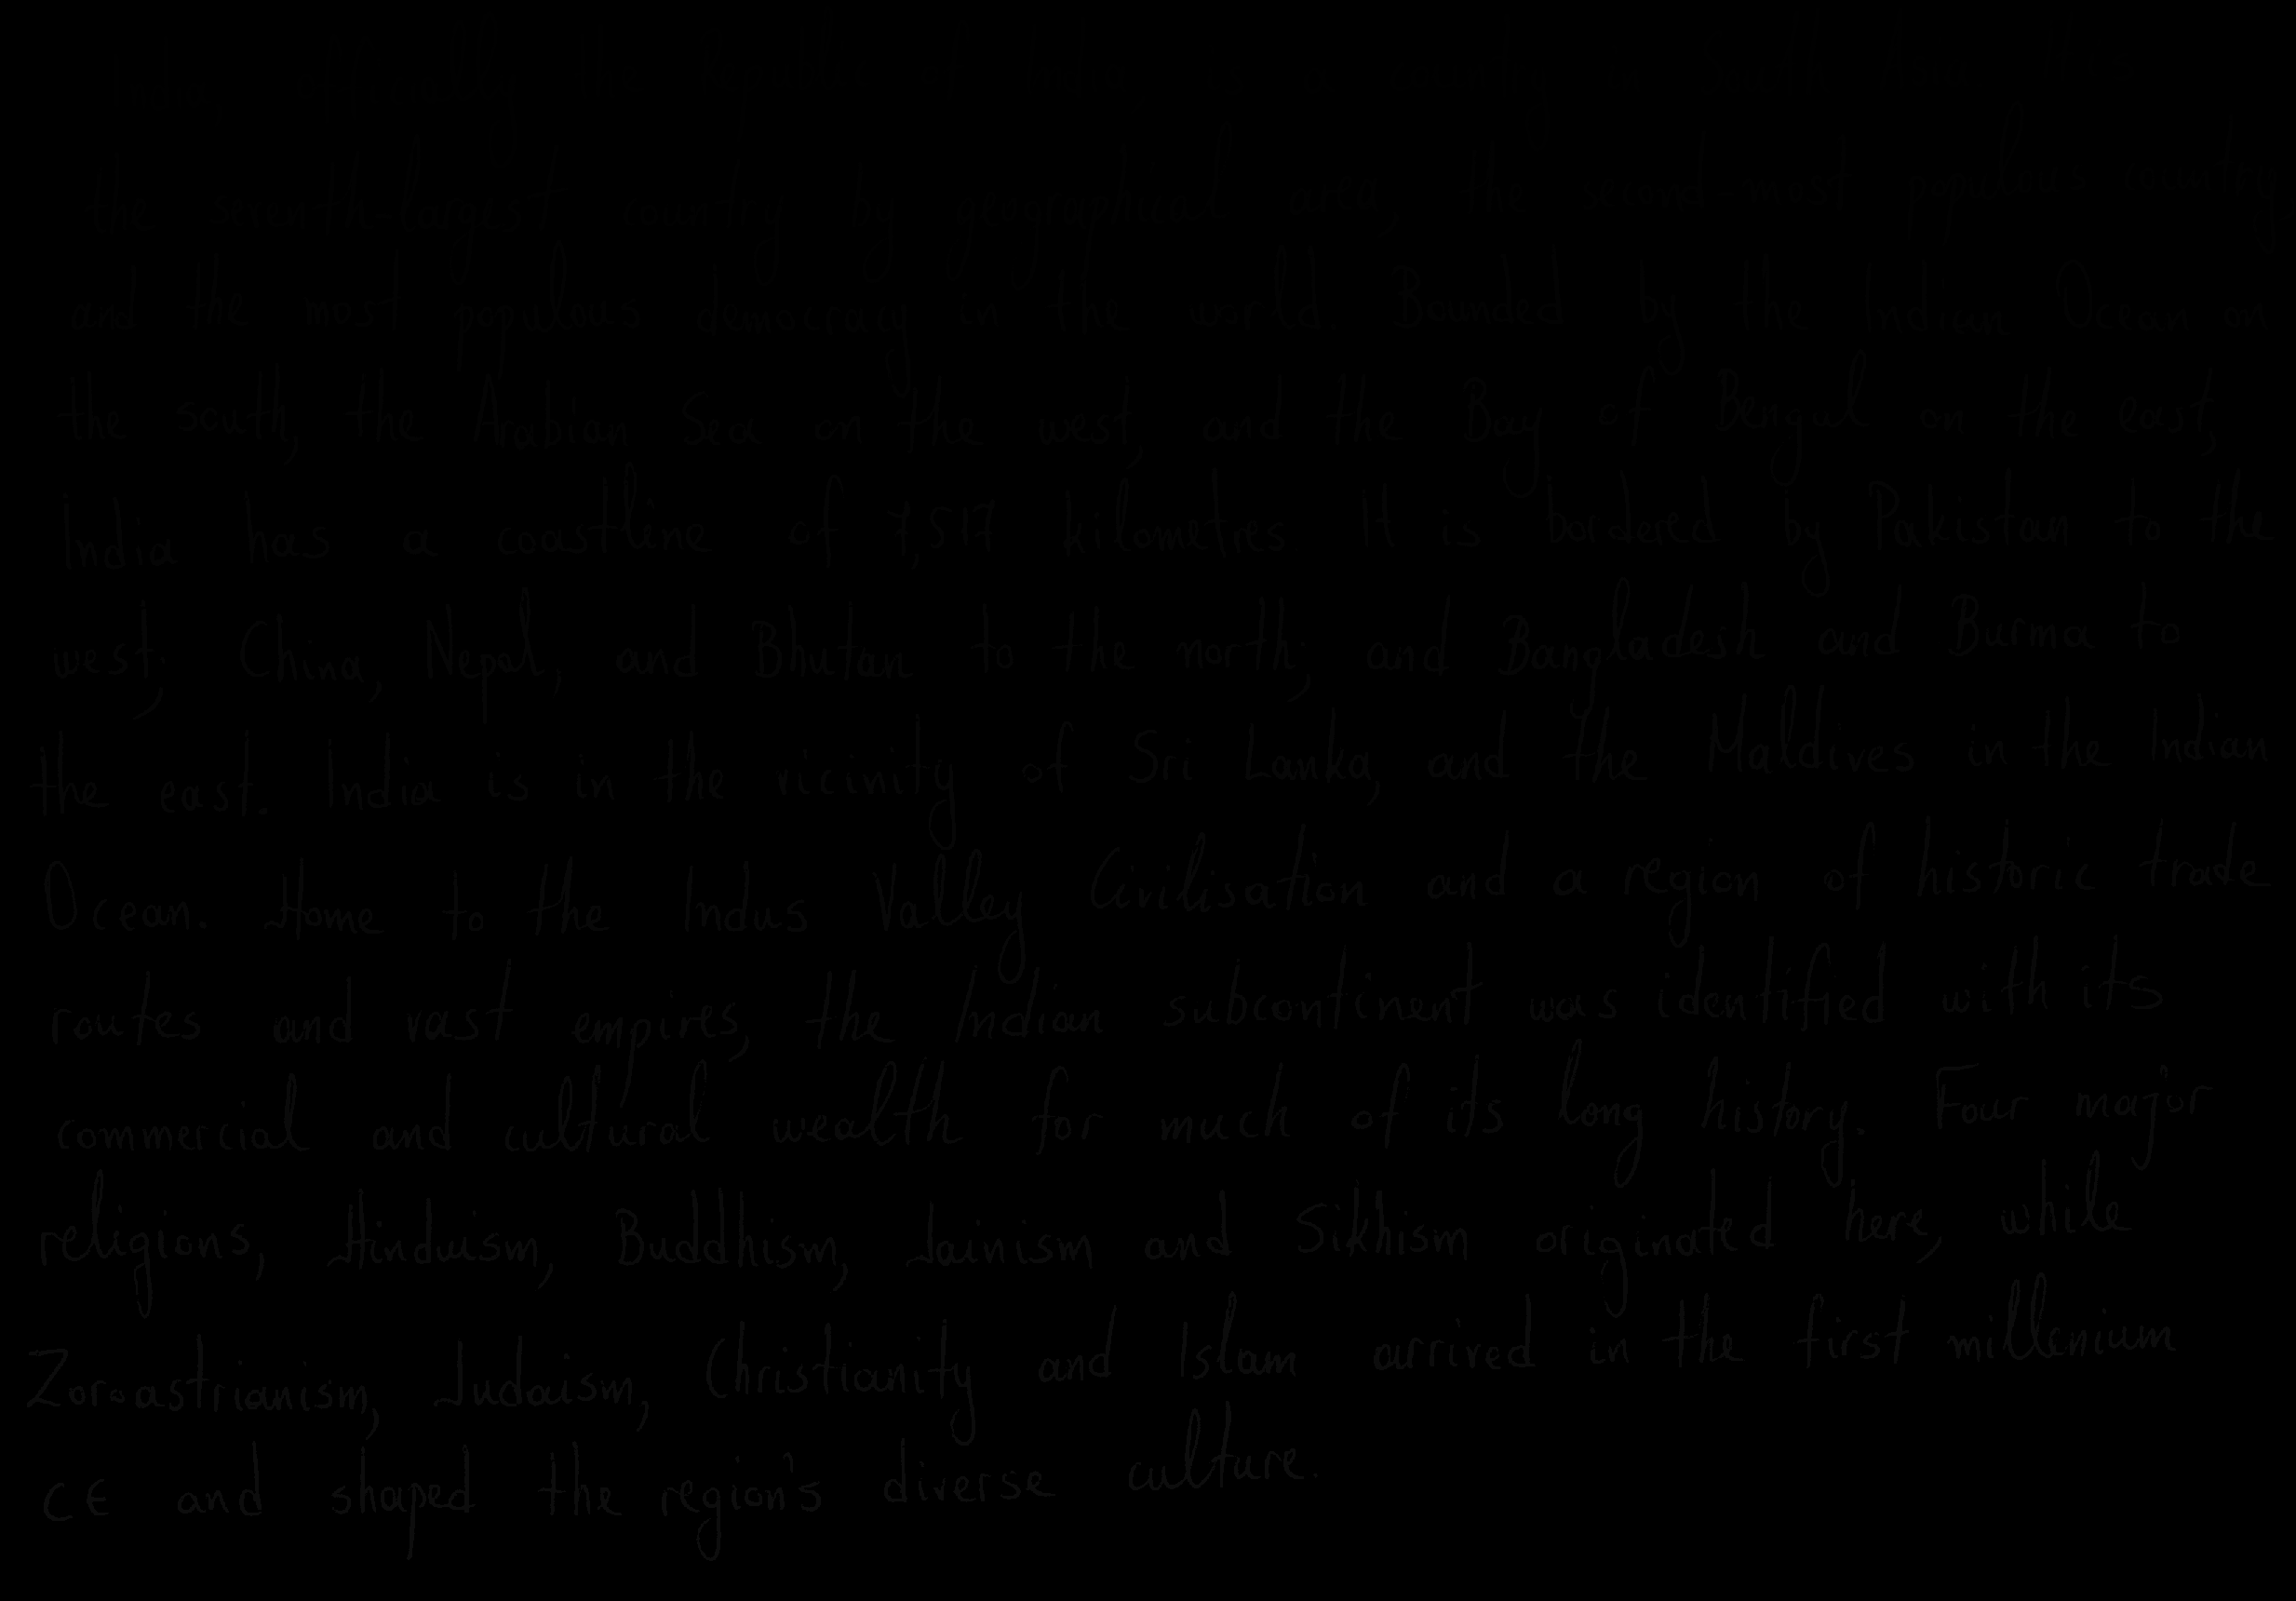 India, officially the Republic of India is a country in South Asia. It is
the seventh-largest country by geographical area, the second-most populous country,
and the most populous democracy in the world. Bounded by the Indian Ocean on
the south, the Arabian Sea on the west, and the Bay of Bengal on the east,
India has a coastline of 7,517 kilometres It is bordered by Pakistan to the
west; China, Nepal, and Bhutan to the north; and Bangladesh and Burma to
the east. India is in the vicinity of Sri Lanka, and the Maldives in the Indian
Ocean. Home to the Indus Valley Civilisation and a region of historic trade
routes and vast empires, the Indian subcontinent was identified with its
commercial and cultural wealth for much of its long history. Four major
religions, Hinduism, Buddhism, Jainism and Sikhism originated here, while
Zoroastrianism, Judaism, Christianity and Islam arrived in the first millenium
CE and shaped the region's diverse culture.